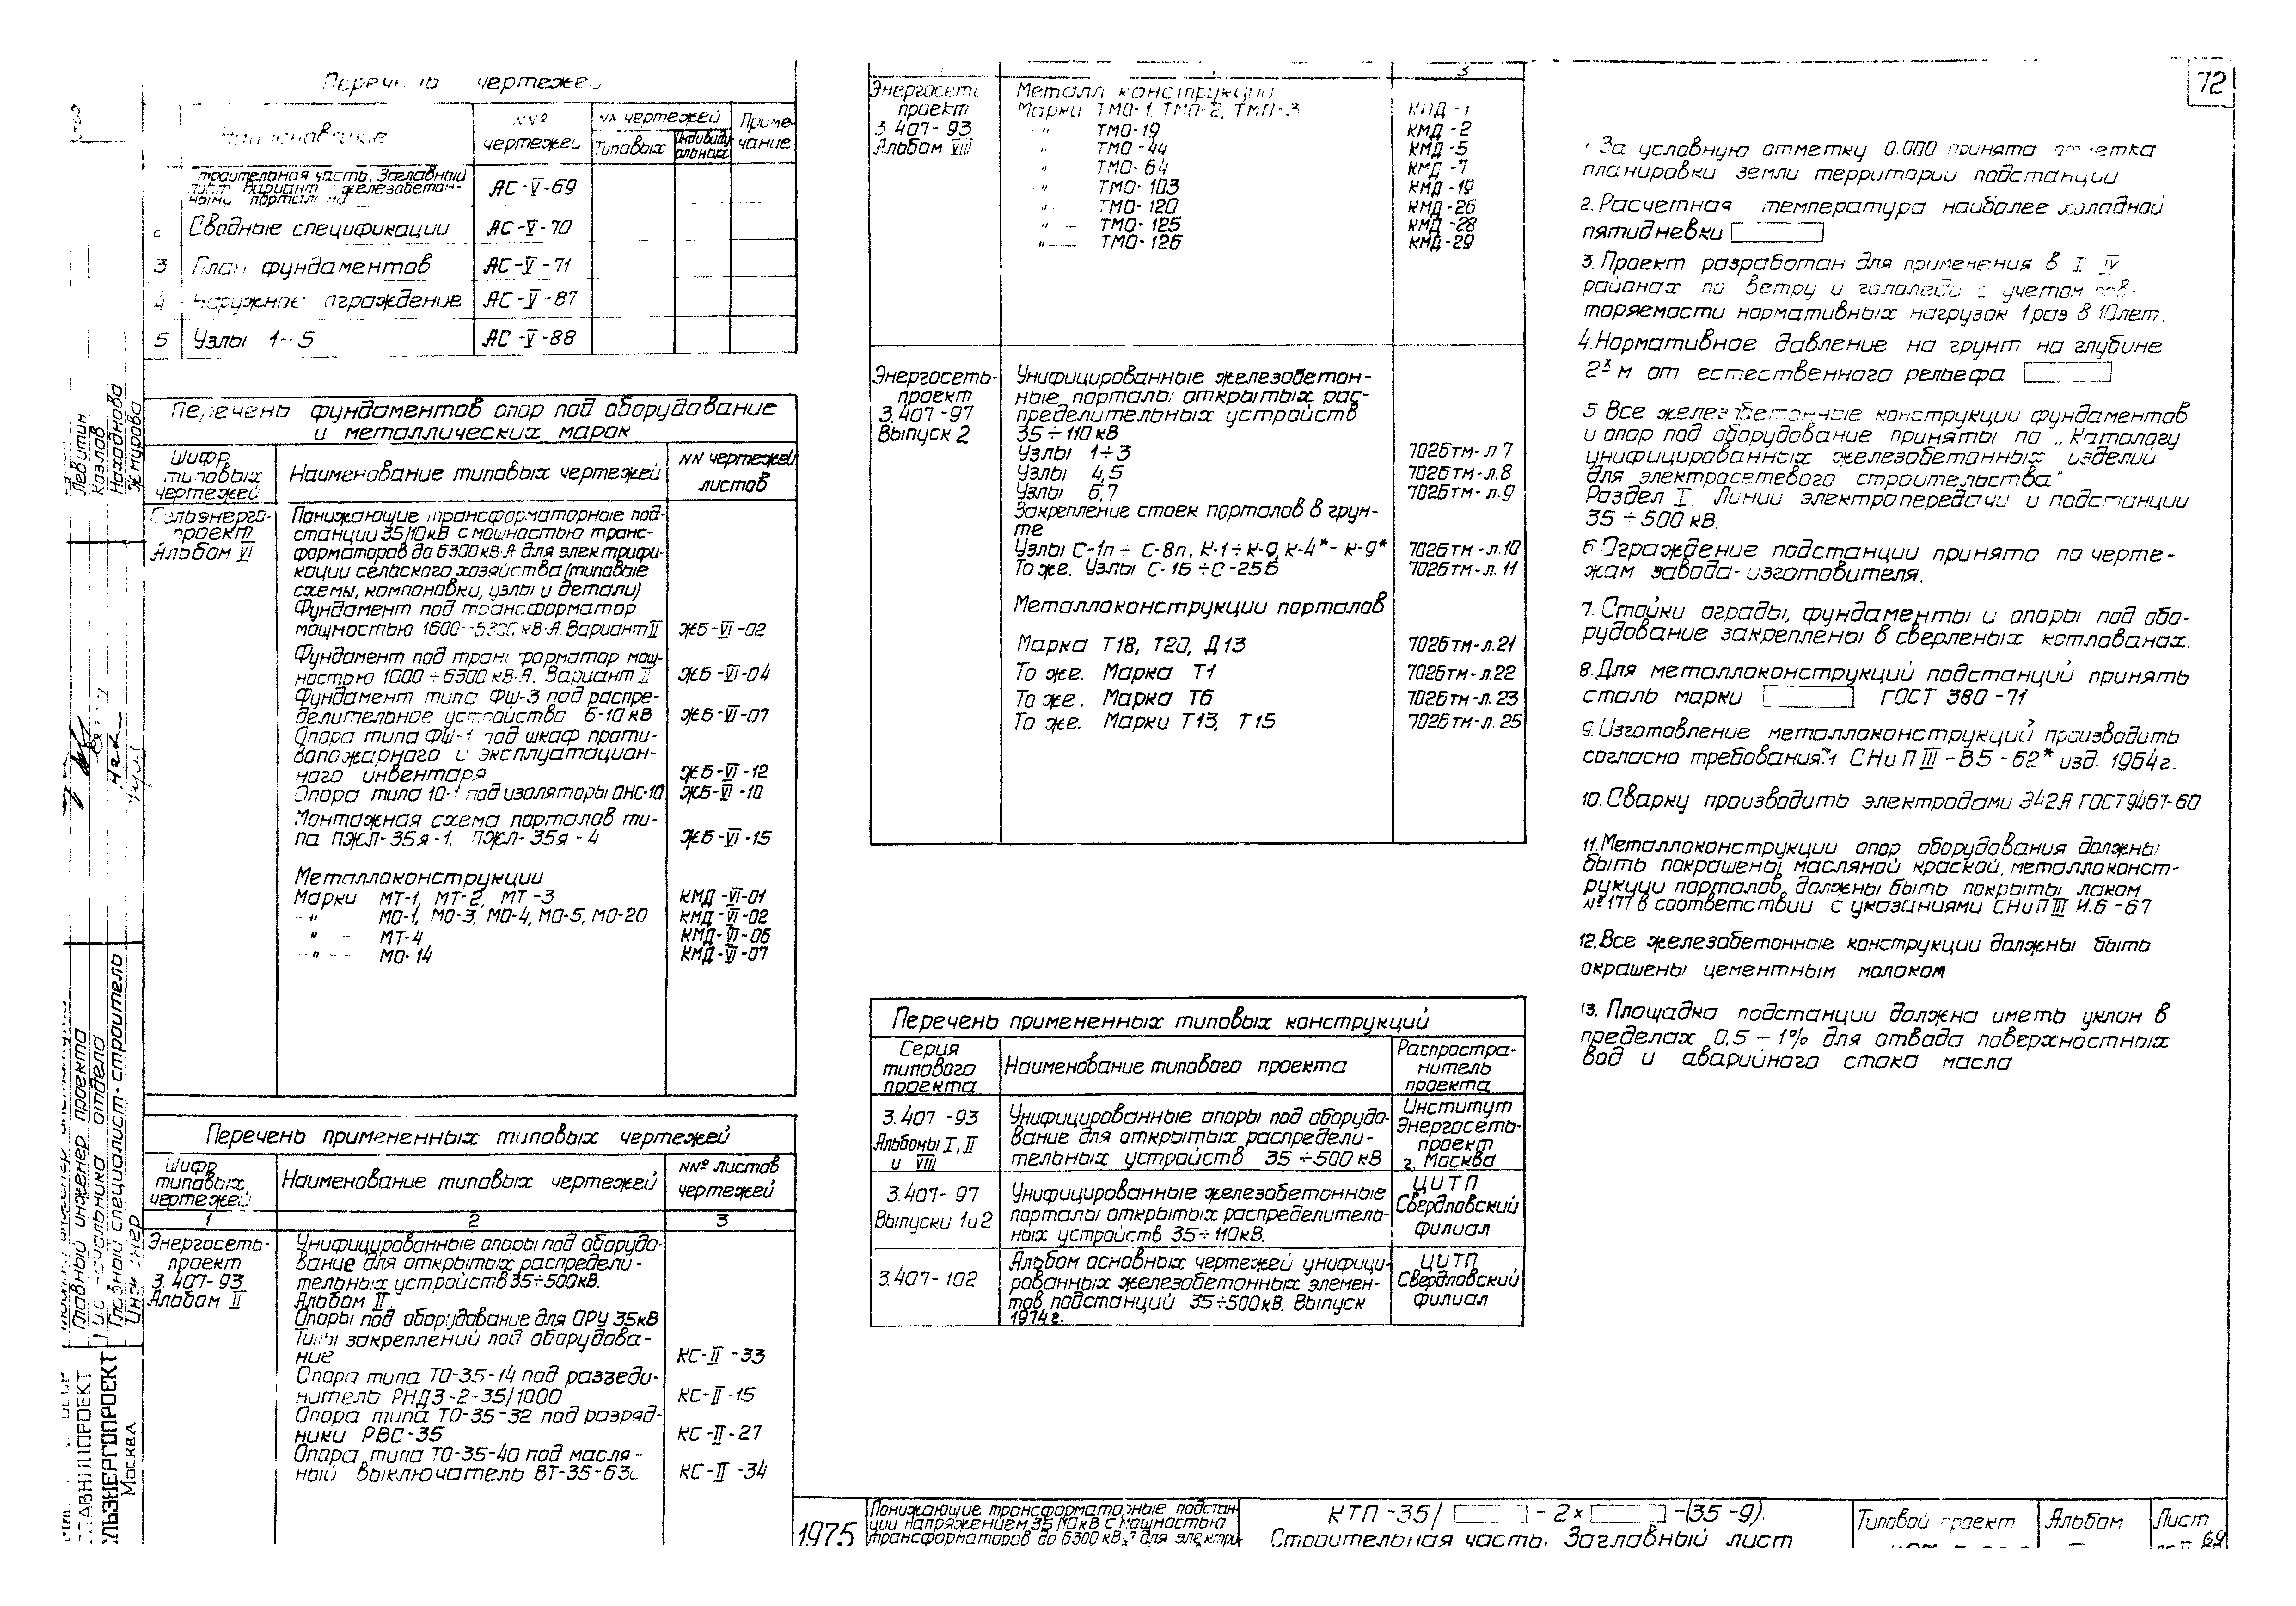 72
чертеже
NN чертежей
чертежей
Типовых
Индивиду
альных
Приме-
чание
троительная часть. Заглавный
лист Вариант железобетон-
АС-V-69
Сводные спецификации АС-V-70
3 План фундаментов АС-V-71
4 Наружное ограждение АС-V-87
5 Узлы 1÷5 АС-V-88
Перечень фундаментов опор под оборудование
и металлических марок
Шифр
типовых
чертежей
Наименование типовых чертежей
NN чертежей
листов
Сельэнерго-
проект
Альбом VI
Понижающие трансформаторные под-
станции 35/10кВ с мощностью транс-
форматоров до 6300 кВ·А для электрифи-
кации сельского хозяйства (типовые
схемы, компоновки, узлы и детали)
Фундамент под трансформатор
мощностью 1600-6300 кВ·А. Вариант II ЖБ-VI-02
Фундамент под трансформатор мощ-
ностью 1000÷6300 кВ·А. Вариант II ЖБ-VI-04
Фундамент типа ФШ-3 под распре-
делительное устройство 6-10 кВ ЖБ-VI-07
Опора типа ФШ-1 под шкаф проти-
вопожарного и эксплуатацион-
ного инвентаря ЖБ-VI-12
Опора типа 10-1 под изоляторы ОНС-10 ЖБ-VI-10
Монтажная схема порталов ти-
па ПЖЛ-35я-1, ПЖЛ-35я-4 ЖБ-VI-15
Металлоконструкции
Марки МТ-1, МТ-2, МТ-3 КМД-VI-01
-"- МО-1, МО-3, МО-4, МО-5, МО-20 КМД-VI-02
" - МТ-4 КМД-VI-06
-"-- МО-14 КМД-VI-07
Перечень примененных типовых чертежей
Шифр
типовых
чертежей
Наименование типовых чертежей
NNº листов
чертежей
1 2 3
Энергосеть-
проект
3.407-93
Альбом II
Унифицированные опоры под оборудо-
вание для открытых распредели-
тельных устройств 35÷500кВ.
Альбом II
Опоры под оборудование для ОРУ 35кВ
Типы закреплений под оборудова-
ние КС-II-33
Опора типа ТО-35-14 под разъеди-
нитель РНДЗ-2-35/1000 КС-II-15
Опора типа ТО-35-32 под разряд-
ники РВС-35 КС-II-27
Опора типа ТО-35-40 под масля-
ный выключатель ВТ-35-630 КС-II-34
3
Энергосеть
проект
3.407-93
Альбом VIII
Металлоконструкции
Марки ТМО-1, ТМО-2, ТМО-3 КМД-1
" ТМО-19 КМД-2
" ТМО-44 КМД-5
" ТМО-64 КМД-7
" ТМО-103 КМД-19
" ТМО-120 КМД-26
" - ТМО-125 КМД-28
"-- ТМО-126 КМД-29
Энергосеть-
проект
3.407-97
Выпуск 2
Унифицированные железобетон-
ные порталы открытых рас-
пределительных устройств
35÷110 кВ
Узлы 1÷3 7026тм-л 7
Узлы 4,5 7026тм-л.8
Узлы 6,7 7026тм-л.9
Закрепление стоек порталов в грун-
те
Узлы С-1п÷С-8п, К-1÷К-9, К-4*-К-9* 7026тм-л.10
То же. Узлы С-16÷С-256 7026тм-л.11
Металлоконструкции порталов
Марка Т18, Т20, Д13 7026тм-л.21
То же. Марка Т1 7026тм-л.22
То же. Марка Т6 7026тм-л.23
То же. Марки Т13, Т15 7026тм-л.25
Перечень примененных типовых конструкций
Серия
типового
проекта
Наименование типового проекта
Распростра-
нитель
проекта
3.407-93
Альбомы I, II
и VIII
Унифицированные опоры под оборудо-
вание для открытых распредели-
тельных устройств 35÷500 кВ
Институт
Энергосеть-
проект
г. Москва
3.407-97
Выпуски 1и2
Унифицированные железобетонные
порталы открытых распределитель-
ных устройств 35÷110кВ.
ЦИТП
Свердловский
филиал
3.407-102
Альбом основных чертежей унифици-
рованных железобетонных элемен-
тов подстанций 35÷500кВ. Выпуск
1974г.
ЦИТП
Свердловский
филиал
За условную отметку 0.000 принята отметка
планировки земли территории подстанции
2. Расчетная температура наиболее холодной
пятидневки
3. Проект разработан для применения в I IV
районах по ветру и гололеду с учетом пов-
торяемости нормативных нагрузок 1 раз в 10 лет.
4. Нормативное давление на грунт на глубине
2х м от естественного рельефа
5 Все железобетонные конструкции фундаментов
и опор под оборудование приняты по „Каталогу
унифицированных железобетонных изделий
для электросетевого строительства"
Раздел I. Линии электропередачи и подстанции
35÷500 кВ.
6 Ограждение подстанции принято по черте-
жам завода-изготовителя.
7. Стойки ограды, фундаменты и опоры под обо-
рудование закреплены в сверленых котлованах.
8. Для металлоконструкций подстанций принять
сталь марки ГОСТ 380-71
9. Изготовление металлоконструкций производить
согласно требований СНиП III-В5-62* изд. 1964г.
10. Сварку производить электродами Э42А ГОСТ9467-60
11. Металлоконструкции опор оборудования должны
быть покрашены масляной краской, металлоконст-
рукции порталов должны быть покрыты лаком
№177 в соответствии с указаниями СНиП III И.6-67
12. Все железобетонные конструкции должны быть
окрашены цементным молоком
13. Площадка подстанции должна иметь уклон в
пределах 0,5-1% для отвода поверхностных
вод и аварийного стока масла
Левитин
Козлов
Находнова
Жмурова
Главный инженер проекта
отдела
Главный специалист-строитель
ГЛАВНИИПРОЕКТ
СЕЛЬЭНЕРГОПРОЕКТ
Москва
1975
Понижающие трансформаторные подстан-
ции напряжением 35/10кВ с мощностью
трансформаторов до 6300 кВ·А для электри-
КТП-35/ -2х -(35-9).
Строительная часть. Заглавный лист
Типовой проект
Альбом
Лист
69